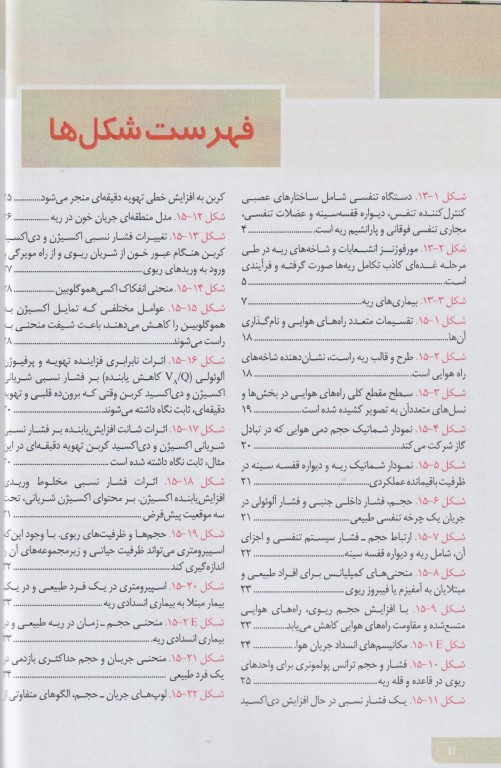 فهرست شکل‌ها
شکل ۱-۱۳. دستگاه تنفسی شامل ساختارهای عصبی
کنترل‌کننده تنفس، دیواره قفسه‌سینه و عضلات تنفسی،
مجاری تنفسی فوقانی و پارانشیم ریه است. ۴
شکل ۲-۱۳. مورفوژنز انشعابات و شاخه‌های ریه در طی
مرحله غده‌ای کاذب تکامل ریه‌ها صورت گرفته و فرآیندی
است. ۵
شکل ۳-۱۳. بیماری‌های ریه. ۷
شکل ۱-۱۵. تقسیمات متعدد راه‌های هوایی و نام‌گذاری
آن‌ها. ۱۸
شکل ۲-۱۵. طرح و قالب ریه راست، نشان‌دهنده شاخه‌های
راه هوایی است. ۱۸
شکل ۳-۱۵. سطح مقطع کلی راه‌های هوایی در بخش‌ها و
نسل‌های متعدد آن به تصویر کشیده شده است. ۱۹
شکل ۴-۱۵. نمودار شماتیک حجم دمی هوایی که در تبادل
گاز شرکت می‌کند. ۲۰
شکل ۵-۱۵. نمودار شماتیک ریه و دیواره قفسه سینه در
ظرفیت باقیمانده عملکردی. ۲۱
شکل ۶-۱۵. حجم، فشار داخلی جنبی و فشار آلوئولی در
جریان یک چرخه تنفسی طبیعی ۲۱
شکل ۷-۱۵. ارتباط حجم ـ فشار سیستم تنفسی و اجزای
آن، شامل ریه و دیواره قفسه سینه. ۲۲
شکل ۸-۱۵. منحنی‌های کمپلیانس برای افراد طبیعی و
مبتلایان به آمفیزم یا فیبروز ریوی ۲۳
شکل ۹-۱۵. با افزایش حجم ریوی، راه‌های هوایی
متسع‌شده و مقاومت راه‌های هوایی کاهش می‌یابد. ۲۳
شکل E ۱-۱۵. مکانیسم‌های انسداد جریان هوا. ۲۴
شکل ۱۰-۱۵. فشار و حجم ترانس پولمونری برای واحدهای
ریوی در قاعده و قله ریه ۲۵
شکل ۱۱-۱۵. یک فشار نسبی در حال افزایش دی‌اکسید
کربن به افزایش خطی تهویه دقیقه‌ای منجر می‌شود.
شکل ۱۲-۱۵. مدل منطقه‌ای جریان خون در ریه
شکل ۱۳-۱۵. تغییرات فشار نسبی اکسیژن و دی‌اکسید
کربن هنگام عبور خون از شریان ریوی و از راه مویرگی
ورود به وریدهای ریوی
شکل ۱۴-۱۵. منحنی انفکاک اکسی‌هموگلوبین
شکل ۱۵-۱۵. عوامل مختلفی که تمایل اکسیژن به
هموگلوبین را کاهش می‌دهند، باعث شیفت منحنی به
راست می‌شوند.
شکل ۱۶-۱۵. اثرات نابرابری فزاینده تهویه و پرفیوژن
آلوئولی (VA/Q کاهش یابنده) بر فشار نسبی شریانی
اکسیژن و دی‌اکسید کربن وقتی که برون‌ده قلبی و تهویه
دقیقه‌ای، ثابت نگاه داشته می‌شوند.
شکل ۱۷-۱۵. اثرات شانت افزایش‌یابنده بر فشار نسبی
شریانی اکسیژن و دی‌اکسید کربن تهویه دقیقه‌ای در این
مثال، ثابت نگاه داشته شده است
شکل ۱۸-۱۵. اثرات فشار نسبی مخلوط وریدی
افزایش‌یابنده اکسیژن. بر محتوای اکسیژن شریانی، تحت
سه موقعیت پیش‌فرض.
شکل ۱۹-۱۵. حجم‌ها و ظرفیت‌های ریوی. با وجود این‌که
اسپیرومتری می‌تواند ظرفیت حیاتی و زیرمجموعه‌های آن
اندازه‌گیری کند
شکل ۲۰-۱۵. اسپیرومتری در یک فرد طبیعی و در یک
بیمار مبتلا به بیماری انسدادی ریه
شکل E ۲-۱۵. منحنی حجم ـ زمان در ریه طبیعی و در
بیماری انسدادی ریه.
شکل ۲۱-۱۵. منحنی جریان و حجم حداکثری بازدمی در
یک فرد طبیعی
شکل ۲۲-۱۵. لوپ‌های جریان ـ حجم، الگوهای متفاوتی از
II